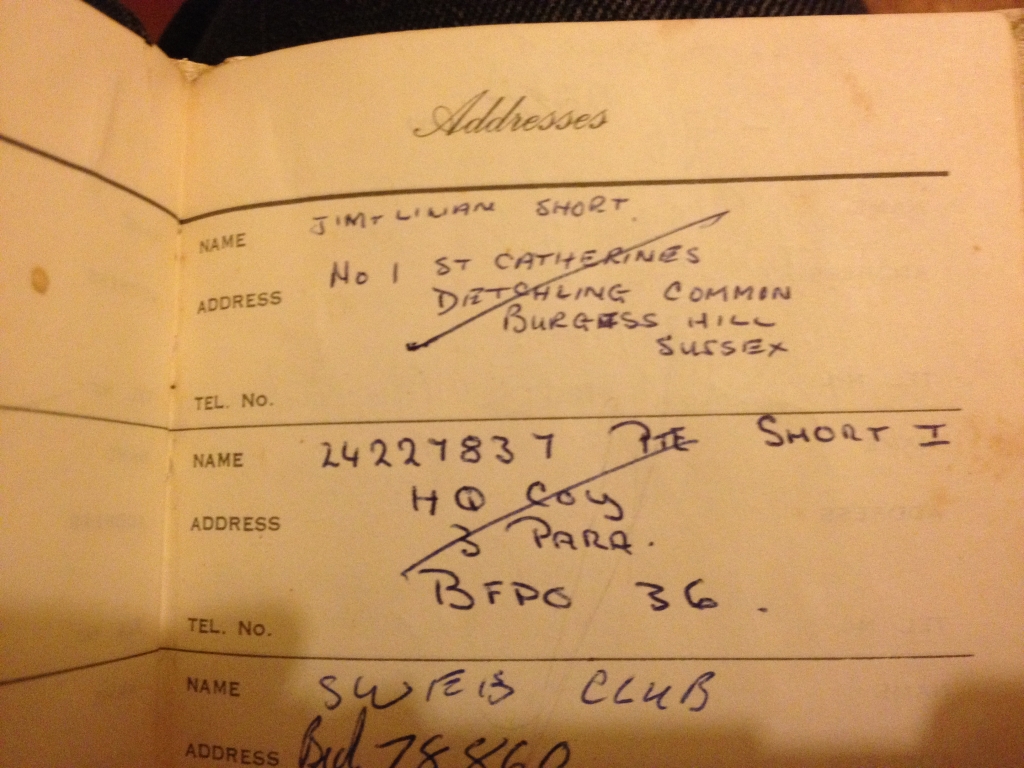 Addresses
NAME JIM+ LILIAN SHORT.
ADDRESS No 1 ST CATHERINES
DITCHLING COMMON
BURGESS HILL
SUSSEX
TEL. No.
NAME 24227837 PTE SHORT I
ADDRESS HQ Coy
3 PARA.
BFPO 36.
TEL. No.
NAME SWEB CLUB
ADDRESS 78860